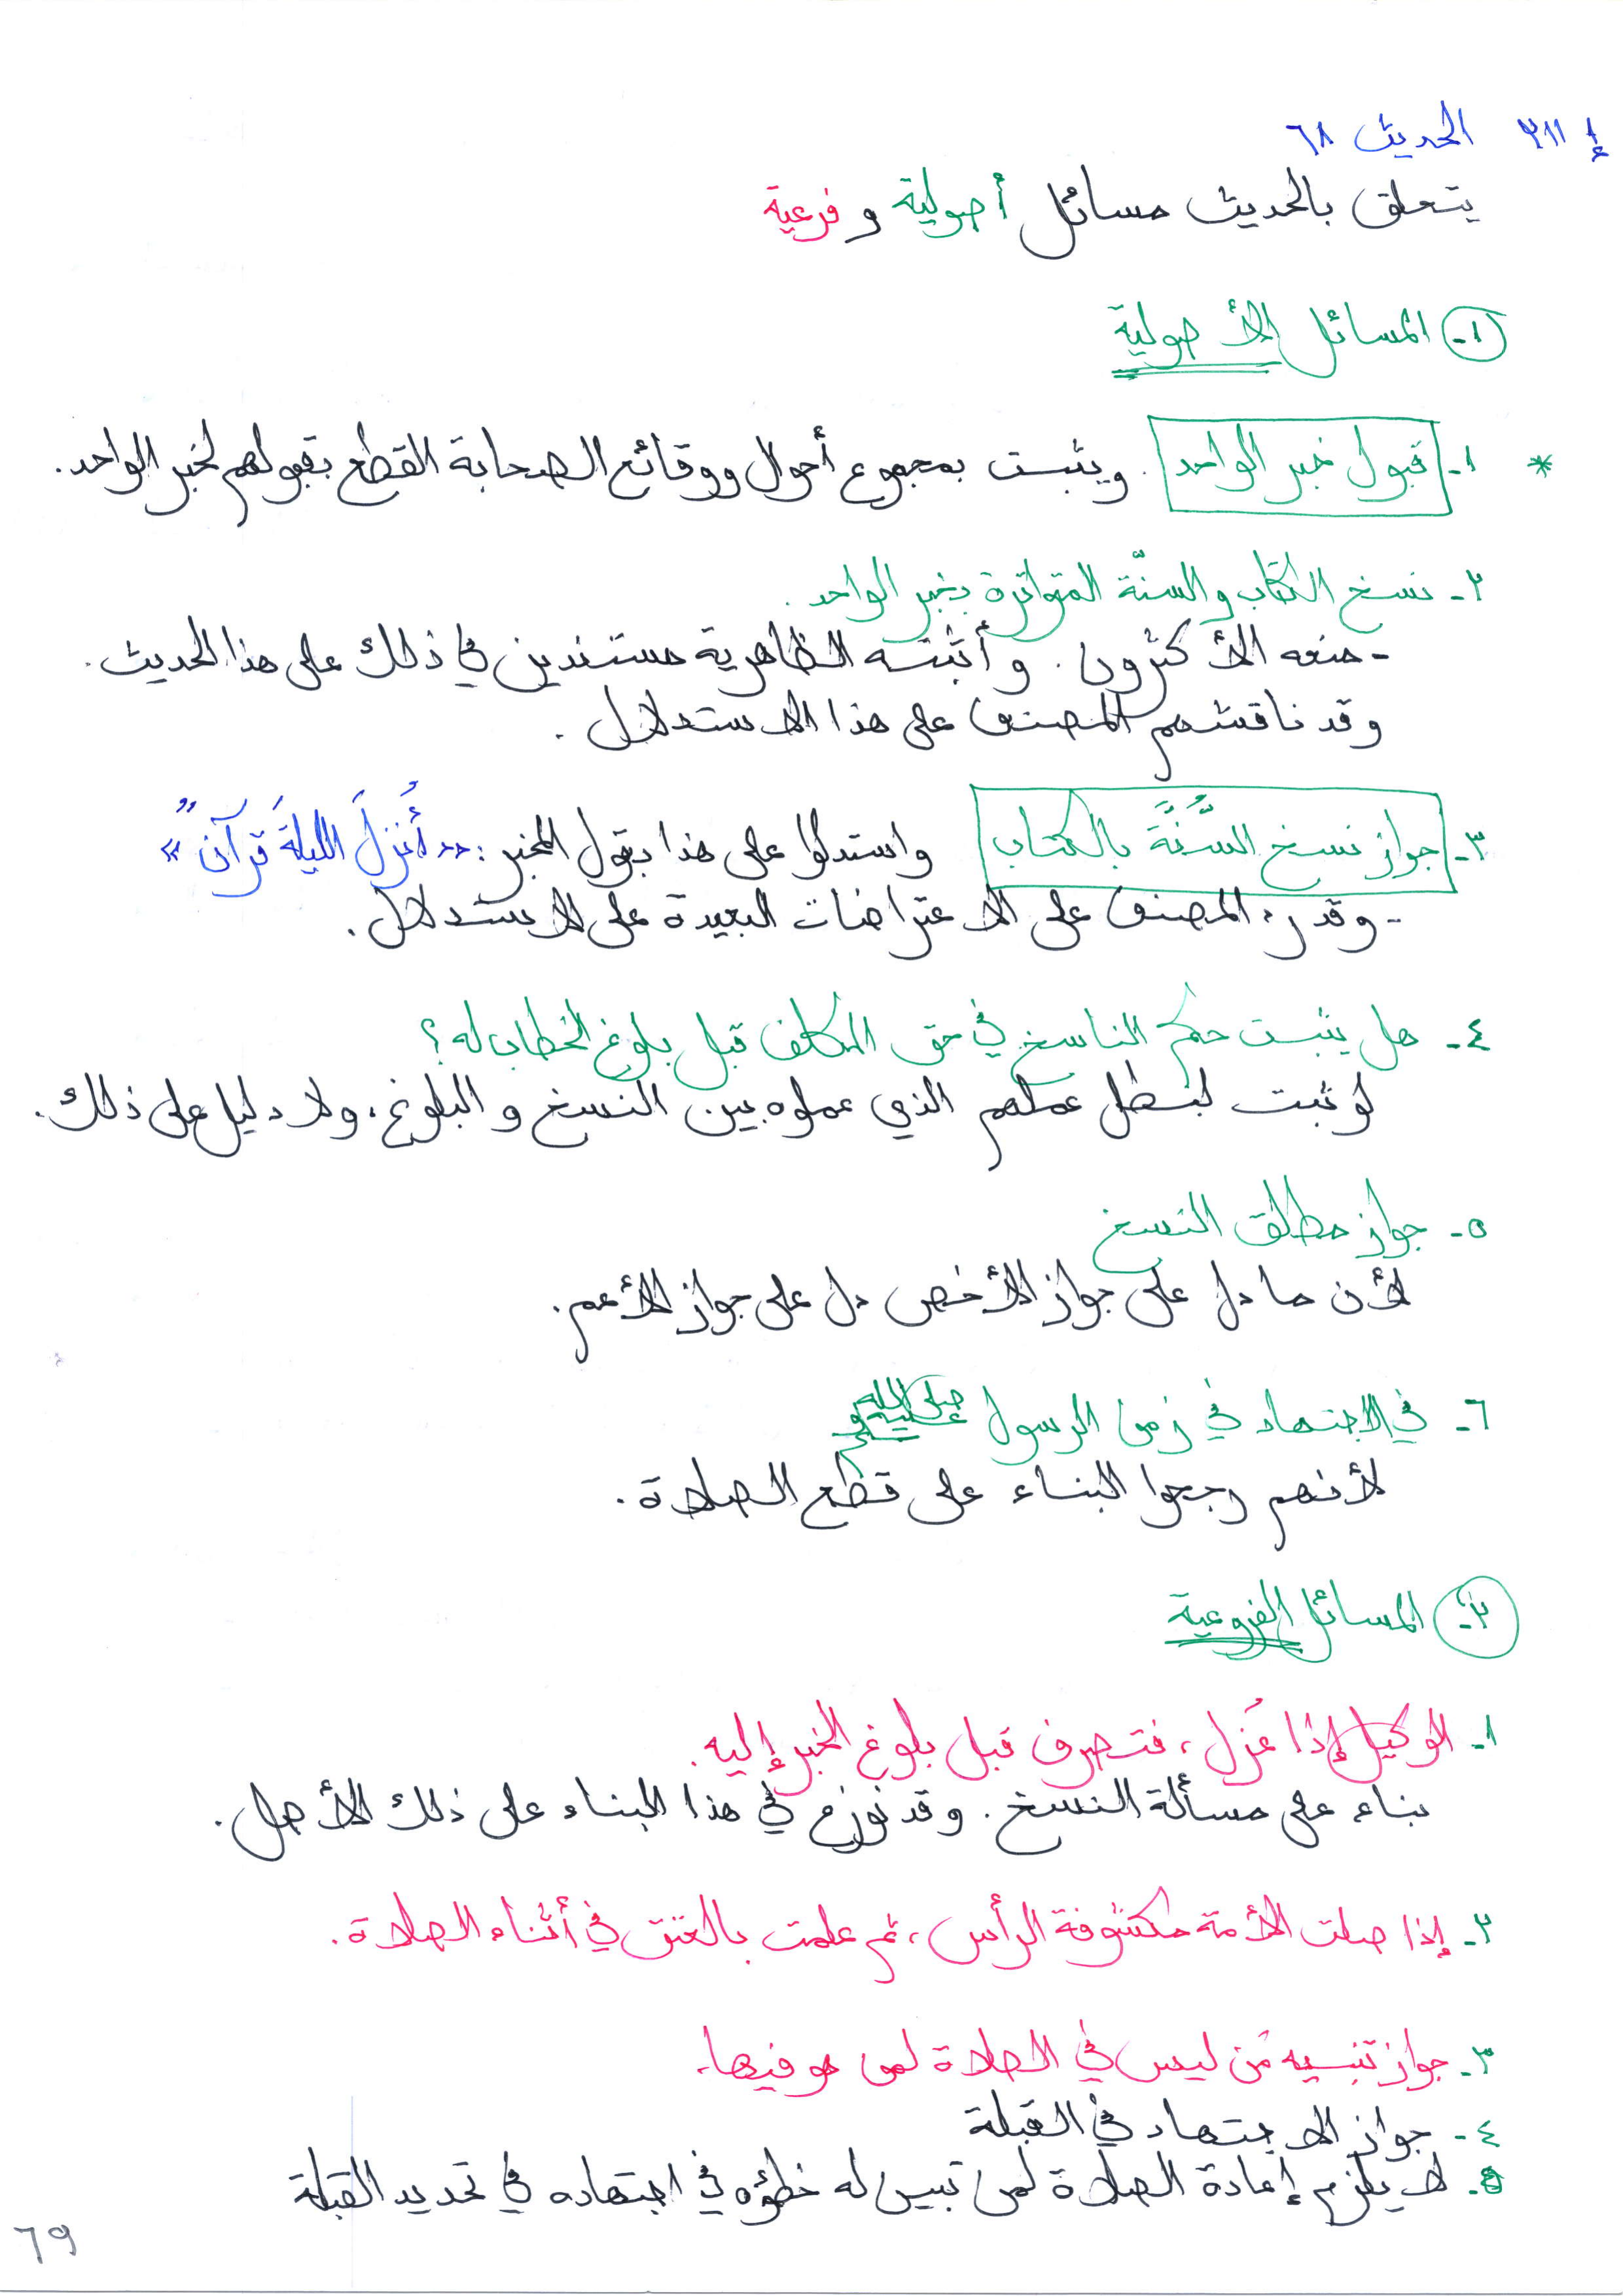 ٢١١ الحديث ٦٨
يتعلق بالحديث مسائل أصولية و فرعية
١- المسائل الأصولية
* ١- قبول خبر الواحد. ويثبت بمجموع أحوال ووقائع الصحابة القطع بقبولهم لخبر الواحد.
٢- نسخ الكتاب والسنّة المتواترة بخبر الواحد.
- منعه الأكثرون. وأثبته الظاهرية مستندين في ذلك على هذا الحديث.
وقد ناقشهم المصنف على هذا الاستدلال.
٣- جواز نسخ السُّنَّة بالكتاب واستدلوا على هذا بقول المخبر: «أُنزلَ الليلةَ قرآن»
- وقد رد المصنف على الاعتراضات البعيدة على الاستدلال.
٤- هل يثبت حكم الناسخ في حق المكلف قبل بلوغ الخطاب له؟
لو ثبت لبطل عملهم الذي عملوه بين النسخ و البلوغ، ولا دليل على ذلك.
٥- جواز مطلق النسخ
لأن ما دل على جواز الأخص دل على جواز الأعم.
٦- في الاجتهاد في زمن الرسول صلى الله عليه وسلم
لأنهم رجحوا البناء على قطع الصلاة.
٢- المسائل الفروعية
١- الوكيل إذا عُزل، فتصرف قبل بلوغ الخبر إليه.
بناء على مسألة النسخ. وقد نوزع في هذا البناء على ذلك الأصل.
٢- إذا صلت الأمة مكشوفة الرأس، ثم علمت بالعتق في أثناء الصلاة.
٣- جواز تنبيه مَن ليس في الصلاة لمن هو فيها.
٤- جواز الاجتهاد في القبلة
٥- لا يلزم إعادة الصلاة لمن تبين له خطؤه في اجتهاده في تحديد القبلة
٦٩